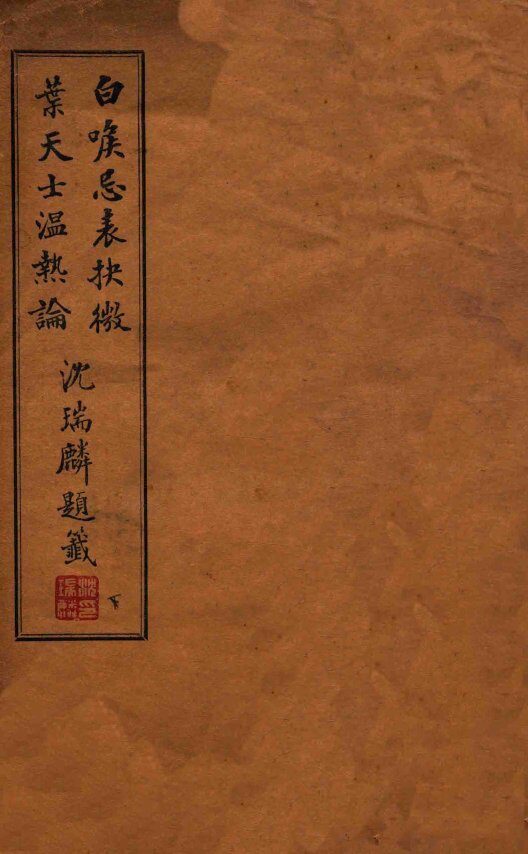 白喉忌表抉微
葉天士温熱論
沈瑞麟題籤